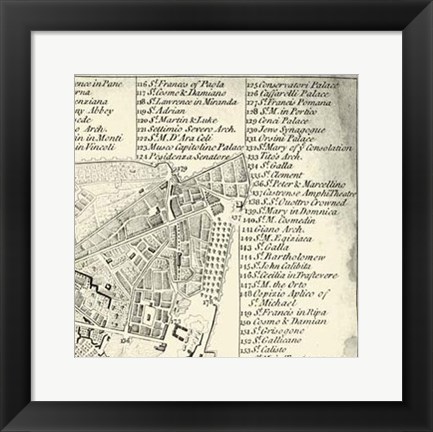 ence in Pane
erna
enziana
ny Abbey
ede
o Arch.
in in Monti
in Vincoli
116 St. Frances of Paola
117 St. Cosmo & Damiano
118 St. Lawrence in Miranda
119 St. Adrian
120 St. Martin & Luke
121 Settimio Severo Arch.
122 St. M. D'Ara Celi
123 Museo Capitolino Palace
124 Residenza Senatore
125 Conservatori Palace
126 Caffarelli Palace
127 St. Francis Romana
128 St. M. in Portico
129 Cenci Palace
130 Jews Synagogue
131 Orsini Palace
132 St. Mary of ye Consolation
133 Tito's Arch.
134 St. Galla
135 St. Clement
136 St. Peter & Marcellino
137 Castrense AmphiTheatre
138 S. St. Quottro Crowned
139 St. Mary in Domnica
140 St. M. Cosmedin
141 Giano Arch.
142 St. M. Egiziaca
143 St. Galla
144 St. Bartholomew
145 St. John Calibita
146 St. Cecilia in Trastevere
147 St. M. the Orto
148 Ospizio Aplico of
St. Michael
149 St. Francis in Ripa
150 Cosmo & Damian
151 St. Grisogono
152 St. Gallicano
153 St. Calisto
179
137